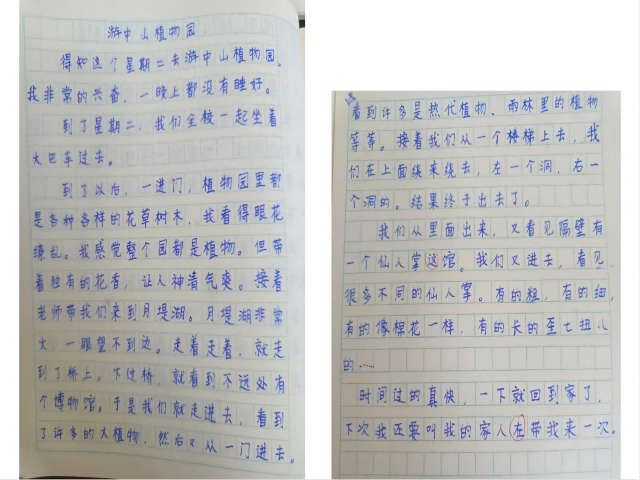 游中山植物园
得知这个星期二去游中山植物园，
我非常的兴奋，一晚上都没有睡好。
到了星期二，我们全校一起坐着
大巴车过去。
到了以后，一进门，植物园里都
是各种各样的花草树木，我看得眼花
缭乱。我感觉整个园都是植物。但带
着独有的花香，让人神清气爽。接着
老师带我们来到月堤湖。月堤湖非常
大，一眼望不到边。走着走着，就走
到了桥上。下过桥，就看到不远处有
个博物馆。于是我们就走进去，看到
了许多的大植物，然后又从一门进去。
看到许多是热代植物、雨林里的植物
等等。接着我们从一个楼梯上去，我
们在上面绕来绕去，左一个洞，右一
个洞的。结果终于出去了。
我们从里面出来，又看见隔壁有
一个仙人掌这馆。我们又进去，看见
很多不同的仙人掌。有的粗，有的细，
有的像棉花一样，有的长的歪七扭八
的……
时间过的真快，一下就回到家了，
下次我还要叫我的家人在带我来一次。